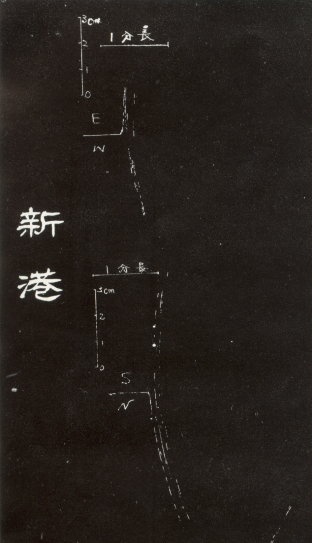 3cm
1分長
2
1
0
E
W
新港
1分長
3cm
2
1
0
S
N